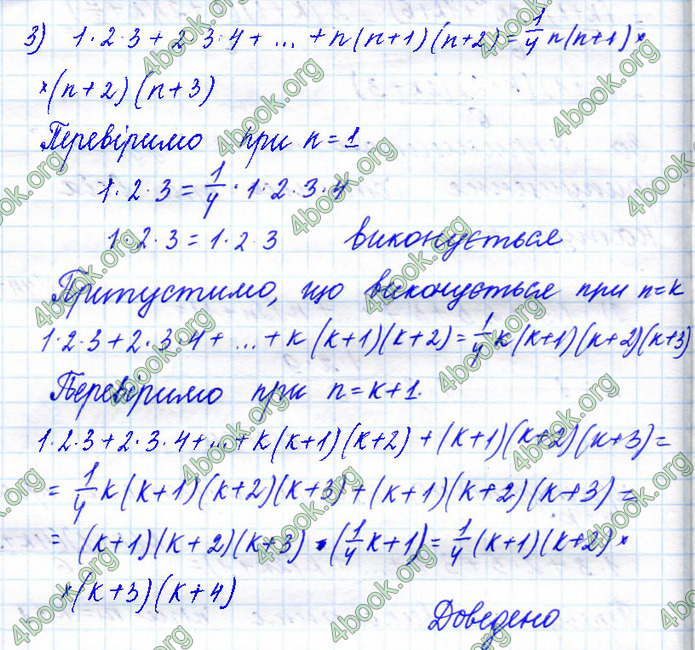 3) 1·2·3 + 2·3·4 + ... + n(n+1)(n+2) = 1/4 n(n+1) ×
×(n+2)(n+3)
Перевіримо при n=1.
1·2·3 = 1/4 · 1·2·3·4
1·2·3 = 1·2·3 виконується
Припустимо, що виконується при n=k
1·2·3+2·3·4+ ... +k(k+1)(k+2) = 1/4 k(k+1)(k+2)(k+3)
Перевіримо при n=k+1.
1·2·3+2·3·4+...+k(k+1)(k+2)+(k+1)(k+2)(k+3)=
= 1/4 k(k+1)(k+2)(k+3)+(k+1)(k+2)(k+3)=
= (k+1)(k+2)(k+3)·(1/4 k+1) = 1/4 (k+1)(k+2) ×
×(k+3)(k+4)
Доведено
4book.org